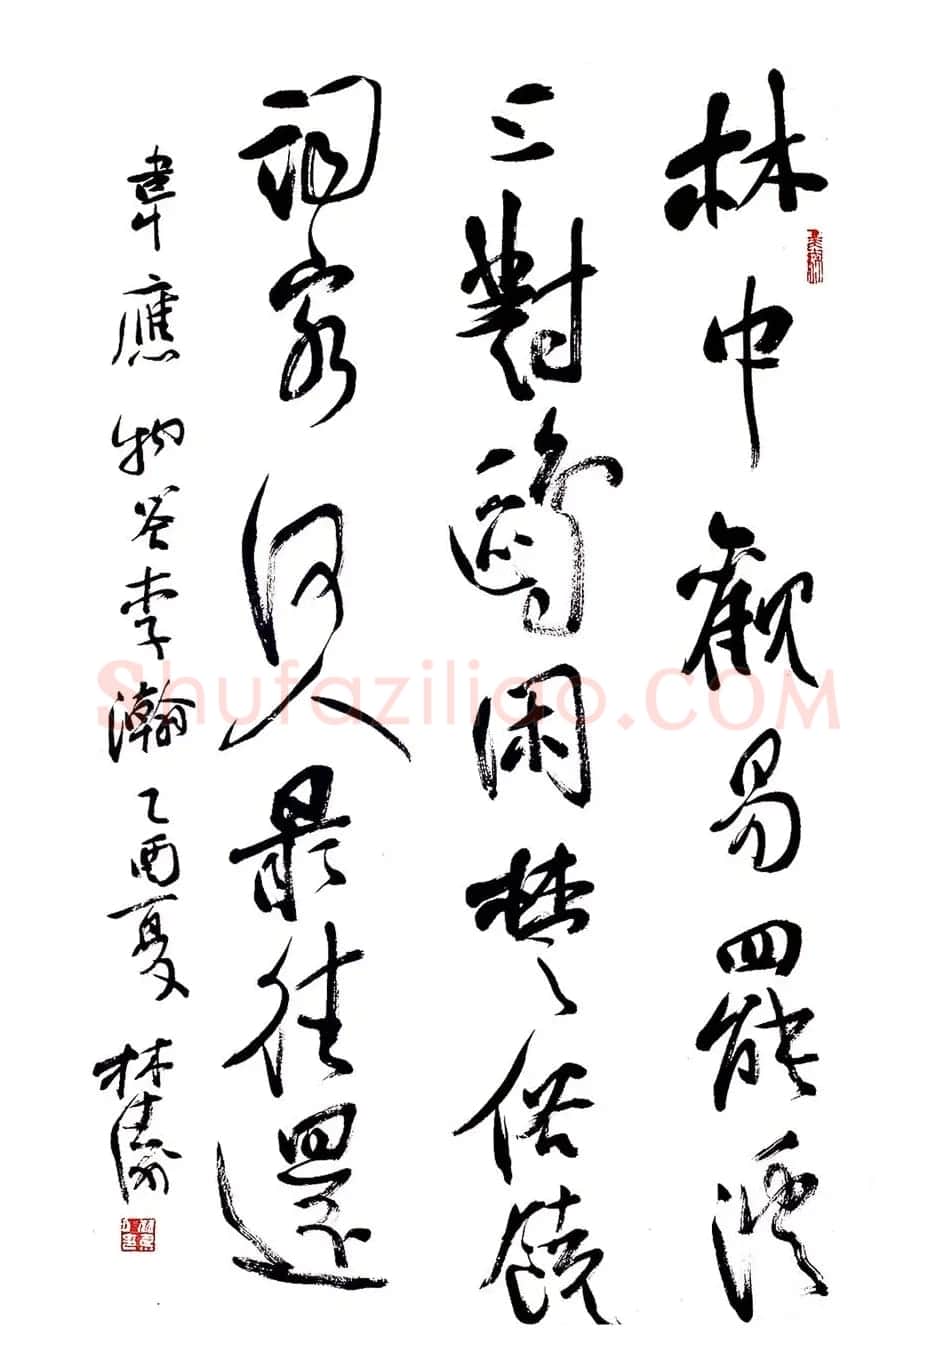 林中觀易罷溪
上對鷗閑楚俗饒
詞客何人最往還
韋應物答李瀚乙酉夏林
Shufaziliao.COM